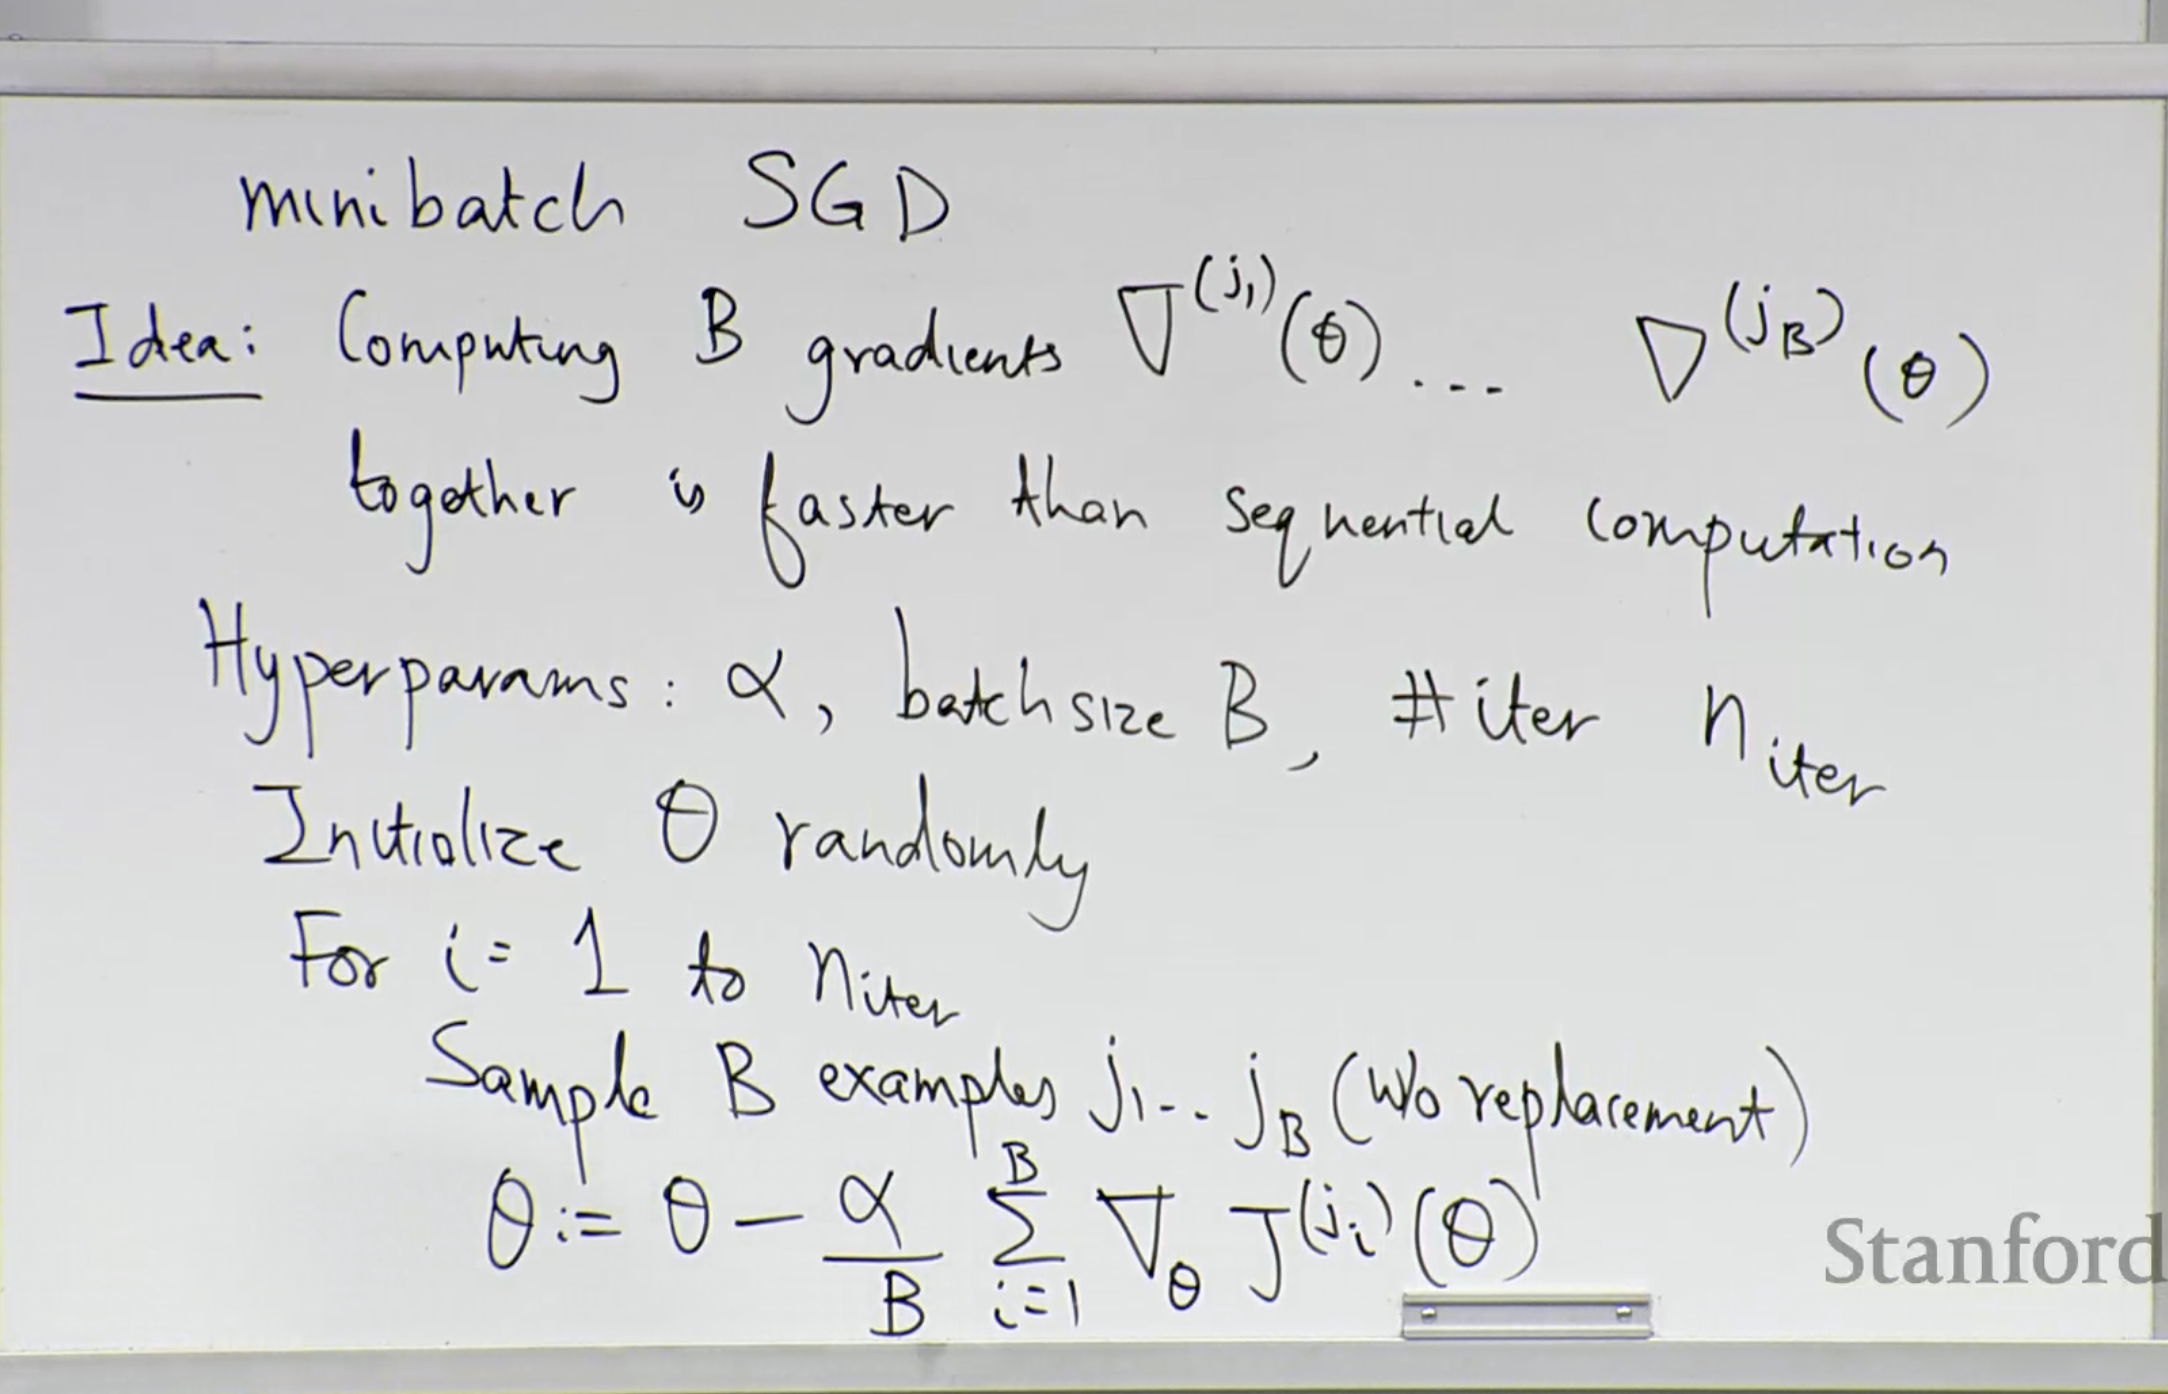 minibatch SGD
Idea: Computing B gradients ∇^(j₁)(θ) ... ∇^(j_B)(θ)
together is faster than sequential computation
Hyperparams: α, batchsize B, #iter n_iter
Initialize θ randomly
For i = 1 to n_iter
Sample B examples j₁... j_B (w/o replacement)
θ := θ - α/B ∑_{i=1}^{B} ∇_θ J^(j_i)(θ)
Stanford